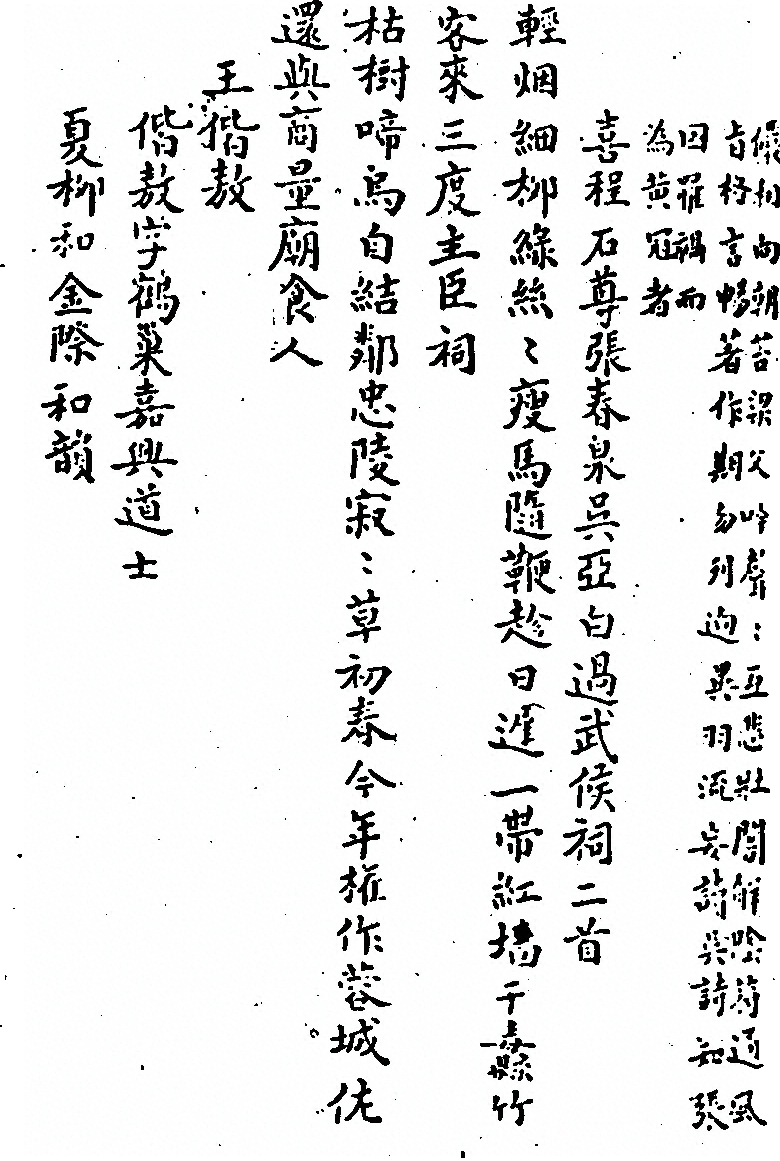 相向朝苔梁父吟聲〻亞悲壯解吟通風
旨格言暢著作期勿列逈異羽流妄詩吳詩如張
因罹禍而
為黃冠者
喜程石尊張春泉吳亞白過武侯祠二首
輕烟細柳綠絲〻瘦馬隨鞭趁日遲一帶紅墻千纛竹
客來三度主臣祠
枯樹啼烏自結鄰忠陵寂〻草初春今年權作蓉城佐
還與商量廟食人
王揩敖
偕敖字鶴巢嘉興道士
夏柳和金際和韻